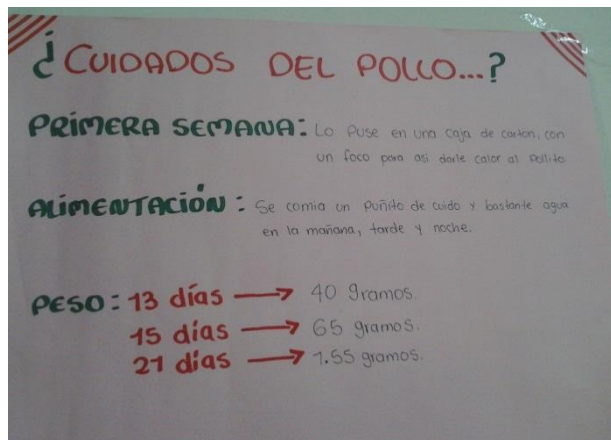 ¿CUIDADOS DEL POLLO...?
PRIMERA SEMANA: Lo Puse en una caja de carton, con
un foco para asi darle calor al pollito
ALIMENTACIÓN: Se comia un puñito de cuido y bastante agua
en la mañana, tarde y noche.
PESO: 13 días → 40 gramos.
15 días → 65 gramos.
21 días → 1.55 gramos.